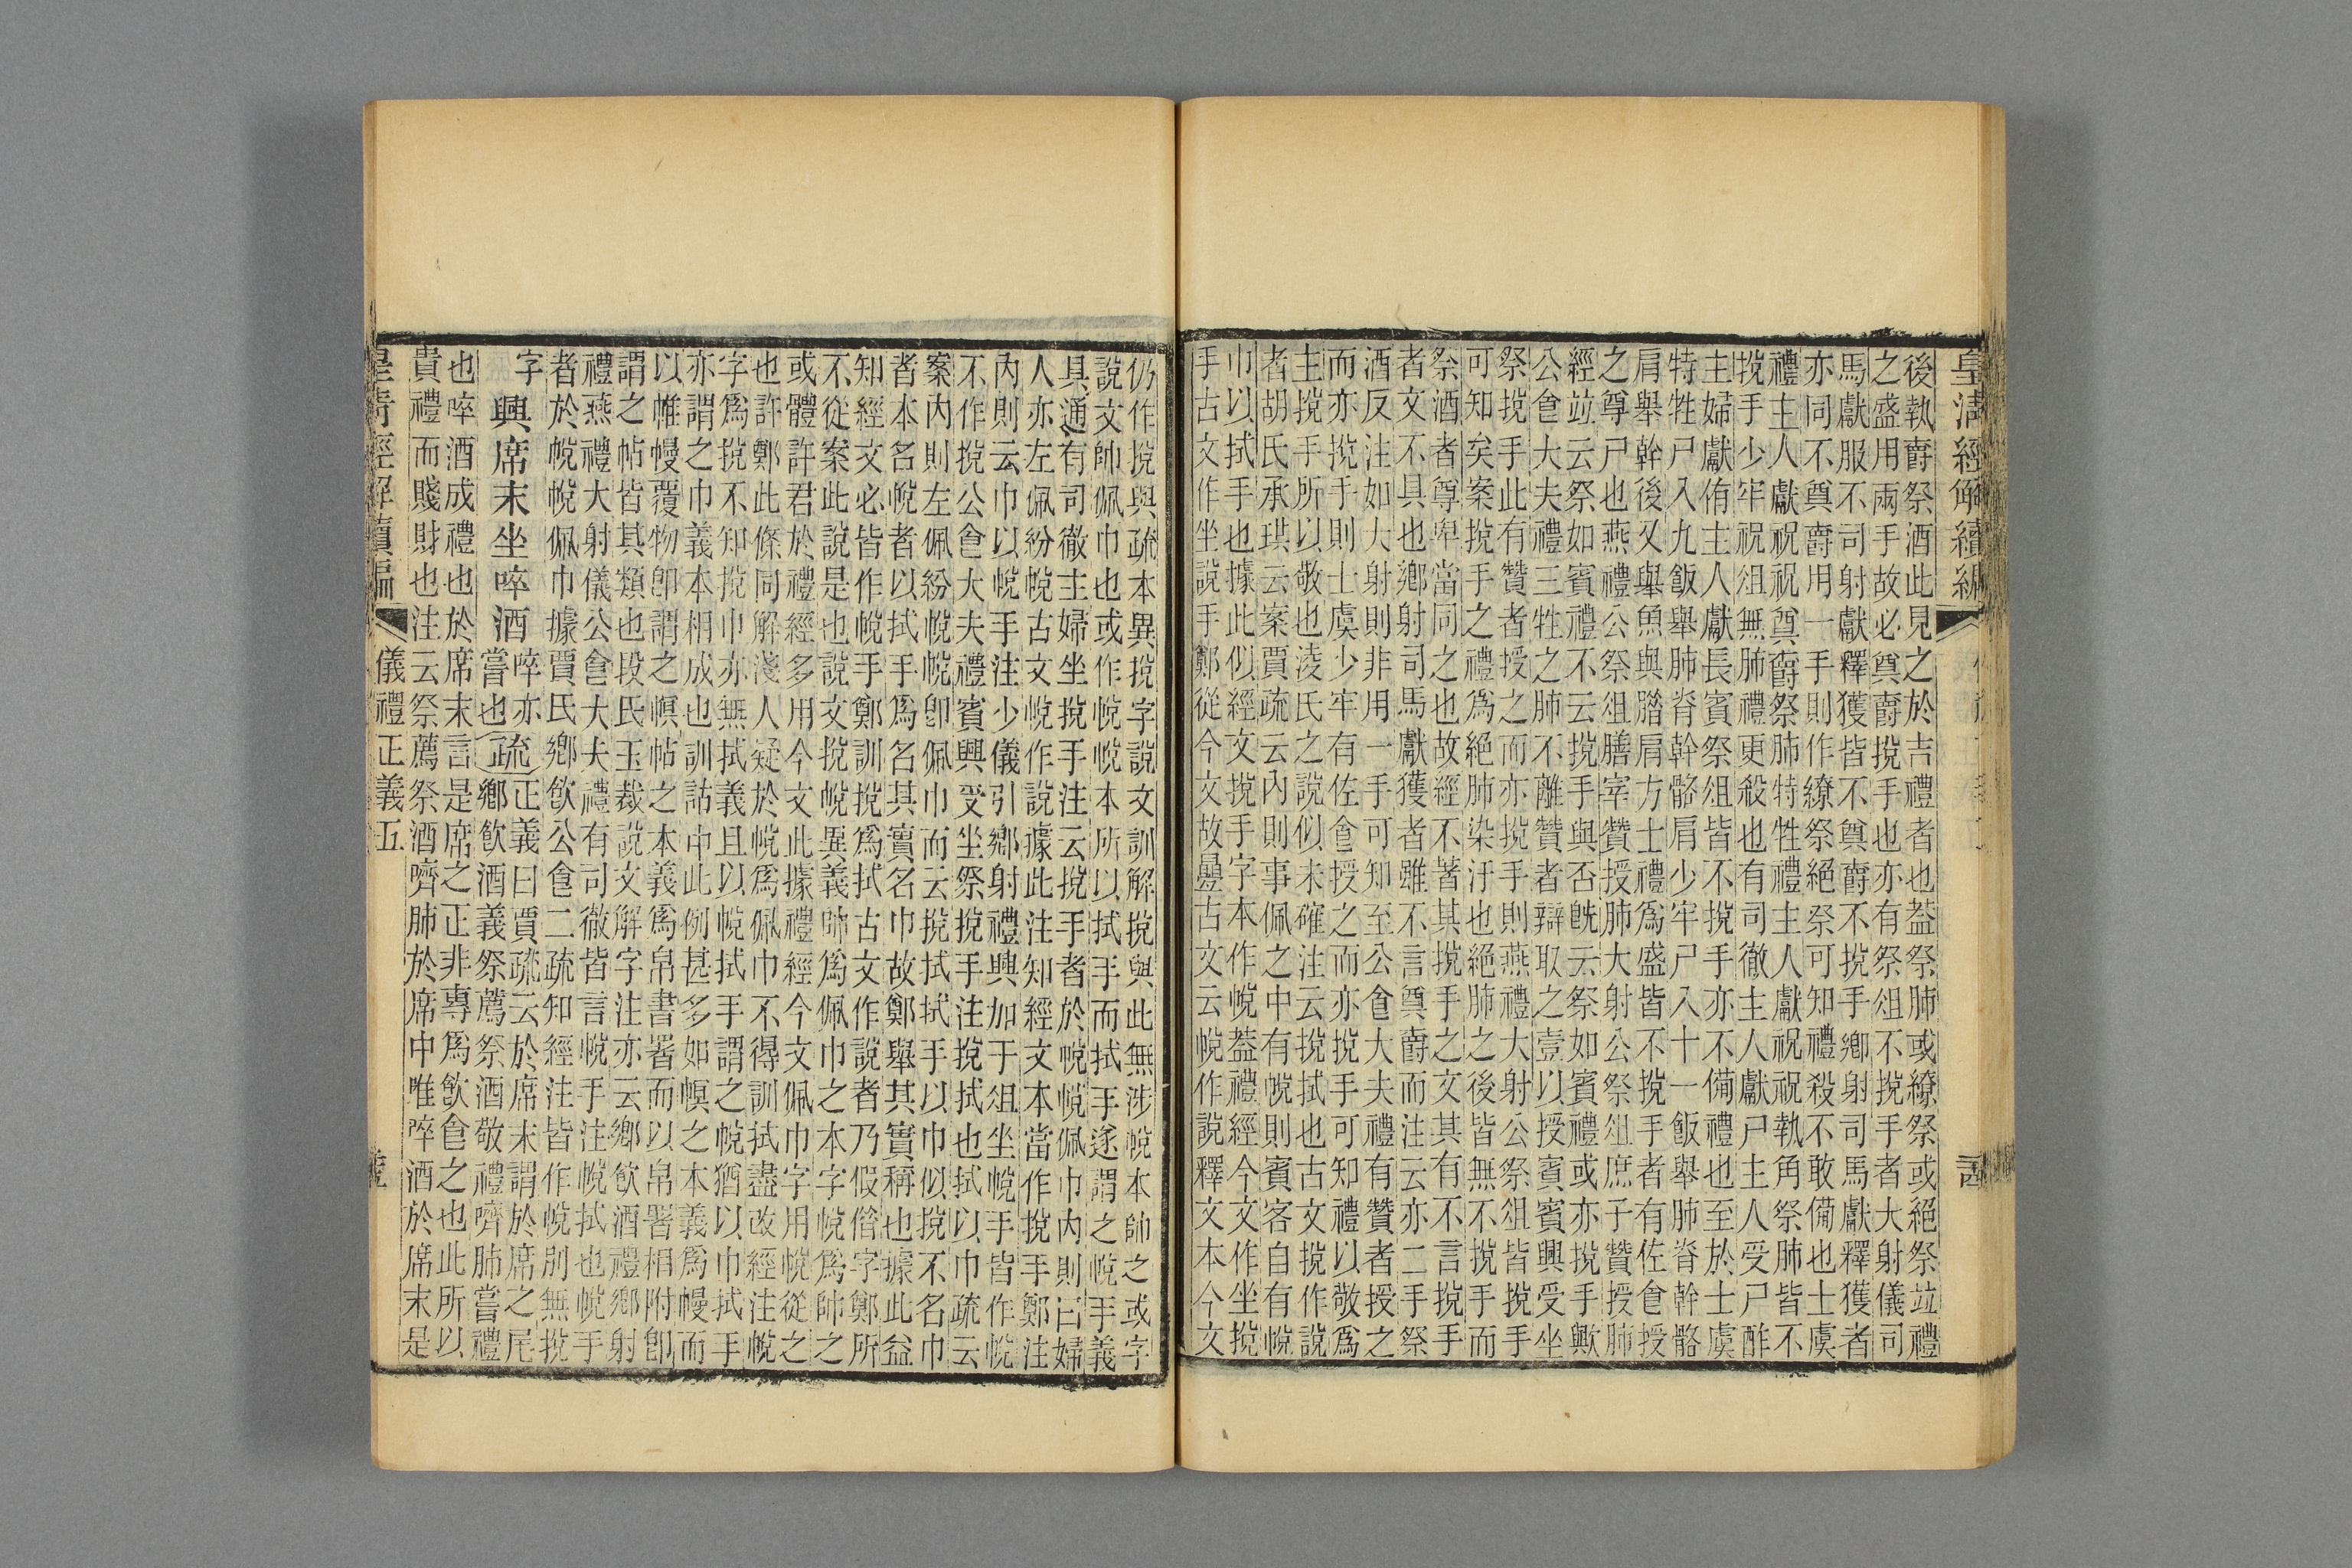 皇清經解續編
後執爵祭酒此見之於吉禮者也葢祭肺或繚祭或絕祭竝禮
之盛用兩手故必奠爵挩手也亦有祭俎不挩手者大射儀司
馬獻服不司射獻釋獲皆不奠爵不挩手鄉射司馬獻釋獲者
亦同不奠爵用一手則作繚祭絕祭可知禮殺不敢備也士虞
禮主人獻祝祝奠爵祭肺特牲禮主人獻祝祝執角祭肺皆不
挩手少牢祝俎無肺禮更殺也有司徹主人獻尸主人受尸酢
主婦獻侑主人獻長賓祭俎皆不挩手亦不備禮也至於士虞
特牲尸入九飯舉肺脊幹骼肩少牢尸入十一飯舉肺脊幹骼
肩舉幹後又舉魚與腊肩方士禮爲盛皆不挩手者有佐食授
之尊尸也燕禮公祭俎膳宰贊授肺大射公祭俎庶子贊授肺
經竝云祭如賓禮不云挩手與否旣云祭如賓禮或亦挩手歟
公食大夫禮三牲之肺不離贊者辯取之壹以授賓賓興受坐
祭挩手此有贊者授之而亦挩手則燕禮大射公祭俎皆挩手
可知矣案挩手之禮爲絕肺染汙也絕肺之後皆無不挩手而
祭酒者尊卑當同之也故經不著其挩手之文其有不言挩手
者文不具也鄉射司馬獻獲者雖不言奠爵而注云亦二手祭
酒反注如大射則非用一手可知至公食大夫禮有贊者授之
而亦挩手則士虞少牢有佐食授之而亦挩手可知禮以敬爲
主挩手所以敬也淩氏之說似未確注云挩拭也古文挩作說
者胡氏承珙云案賈疏云內則事佩之中有帨則賓客自有帨
巾以拭手也據此似經文挩手字本作帨葢禮經今文作坐挩
手古文作坐說手鄭從今文故疊古文云帨作說釋文本今文
仍作挩與疏本異挩字說文訓解挩與此無涉帨本帥之或字
說文帥佩巾也或作帨帨本所以拭手而拭手遂謂之帨手義
具通有司徹主婦坐挩手注云挩手者於帨帨佩巾內則曰婦
人亦左佩紛帨古文帨作說據此注知經文本當作挩手鄭注
內則云巾以帨手注少儀引鄉射禮興加于俎坐帨手皆作帨
不作挩公食大夫禮賓興受坐祭挩手注挩拭也拭以巾疏云
案內則左佩紛帨帨卽佩巾而云挩拭拭手以巾似挩不名巾
者本名帨者以拭手爲名其實名巾故鄭舉其實稱也據此益
知經文必皆作帨手鄭訓挩爲拭古文作說者乃假借字鄭所
不從案此說是也說文挩帨異義帥爲佩巾之本字帨爲帥之
或體許君於禮經多用今文此據禮經今文佩巾字用帨從之
也許鄭此條同解淺人疑於帨爲佩巾不得訓拭盡改經注帨
字爲挩不知挩巾亦無拭義且以帨拭手謂之帨猶以巾拭手
亦謂之巾義本相成也訓詁中此例甚多如幎之本義爲幔而
以帷幔覆物卽謂之幎帖之本義爲帛書署而以帛署相附卽
謂之帖皆其類也段氏玉裁說文解字注亦云鄉飮酒禮鄉射
禮燕禮大射儀公食大夫禮有司徹皆言帨手注帨拭也帨手
者於帨帨佩巾據賈氏鄉飮公食二疏知經注皆作帨別無挩
字
興席末坐啐酒
啐亦
嘗也
疏
正義曰賈疏云於席末謂於席之尾
鄉飮酒義祭薦祭酒敬禮嚌肺嘗禮
也啐酒成禮也於席末言是席之正非專爲飮食之也此所以
貴禮而賤財也注云祭薦祭酒嚌肺於席中唯啐酒於席末是
皇清經解續編
儀禮正義五